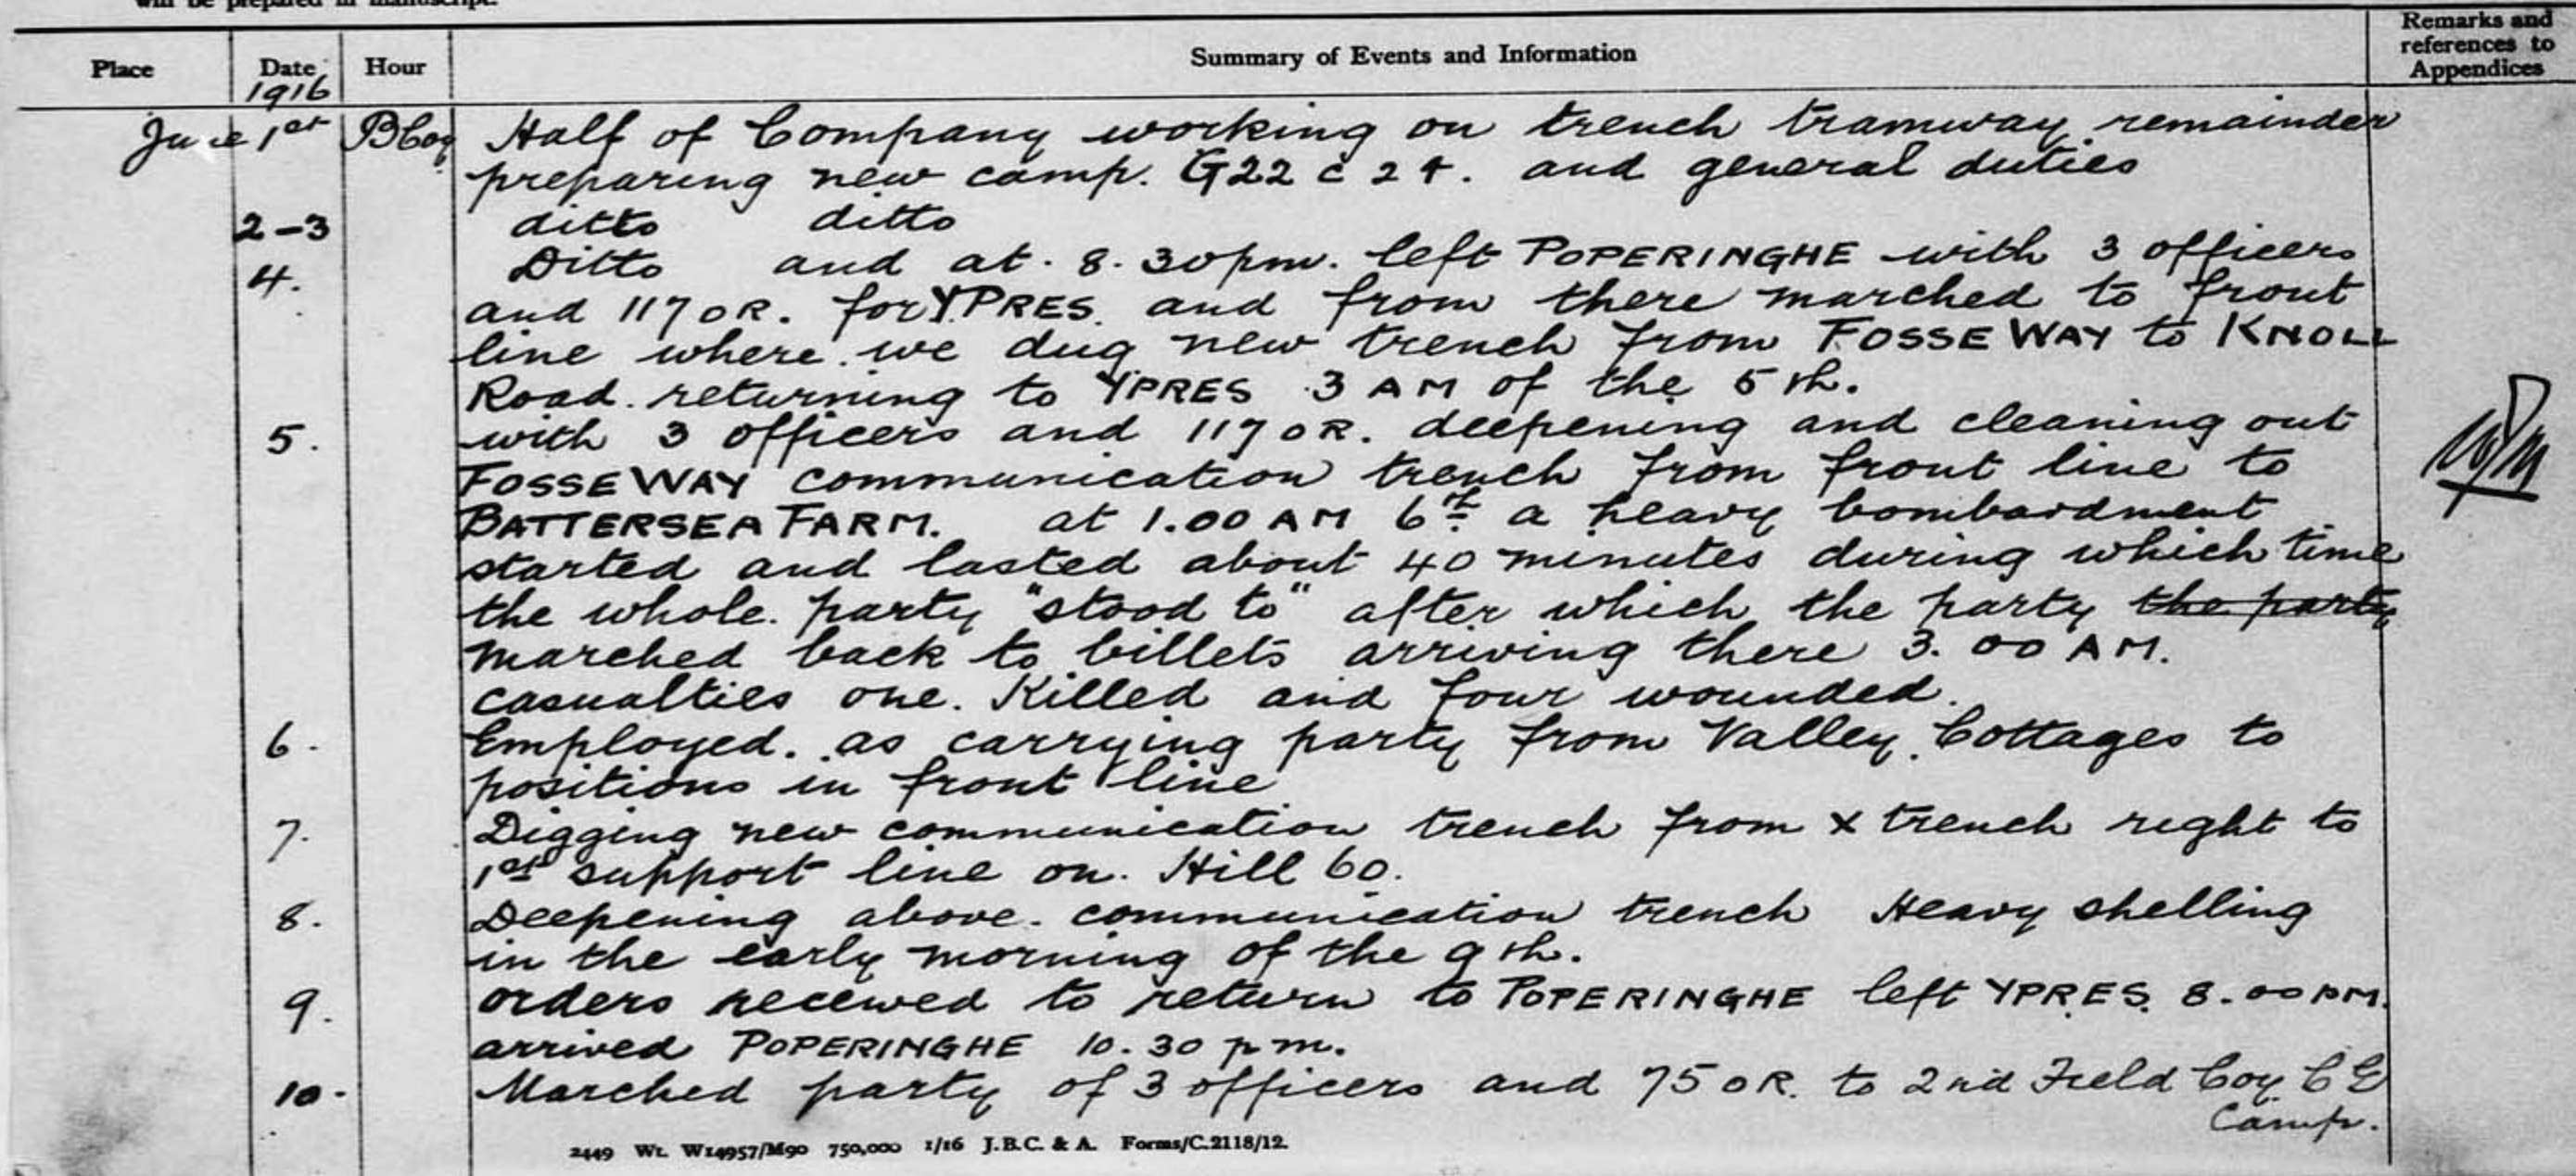 will be prepared in manuscript.
Place Date Hour Summary of Events and Information Remarks and references to Appendices
1916
June 1st B Coy Half of Company working on trench tramway remainder
preparing new camp. G22 c 2 4. and general duties
2-3 ditto ditto
4. Ditto and at. 8.30pm. left POPERINGHE with 3 officers
and 117 OR. for YPRES. and from there marched to front
line where we dug new trench from FOSSE WAY to KNOLL
Road. returning to YPRES 3 AM of the 5th.
5. with 3 officers and 117 OR. deepening and cleaning out
FOSSE WAY communication trench from front line to
BATTERSEA FARM. at 1.00 AM 6th a heavy bombardment
started and lasted about 40 minutes during which time
the whole. party "stood to" after which the party the party
marched back to billets arriving there 3.00 AM.
casualties one. Killed and four wounded.
6. Employed. as carrying party from Valley Cottages to
positions in front line
7. Digging new communication trench from X trench right to
1st support line on. Hill 60.
8. Deepening above. communication trench Heavy shelling
in the early morning of the 9th.
9. orders received to return to POPERINGHE left YPRES. 8.00 PM.
arrived POPERINGHE 10.30 pm.
10. Marched party of 3 officers and 75 OR. to 2nd Field Coy C E
Camp.
2449 Wt. W14957/M90 750,000 1/16 J.B.C. & A. Forms/C.2118/12.